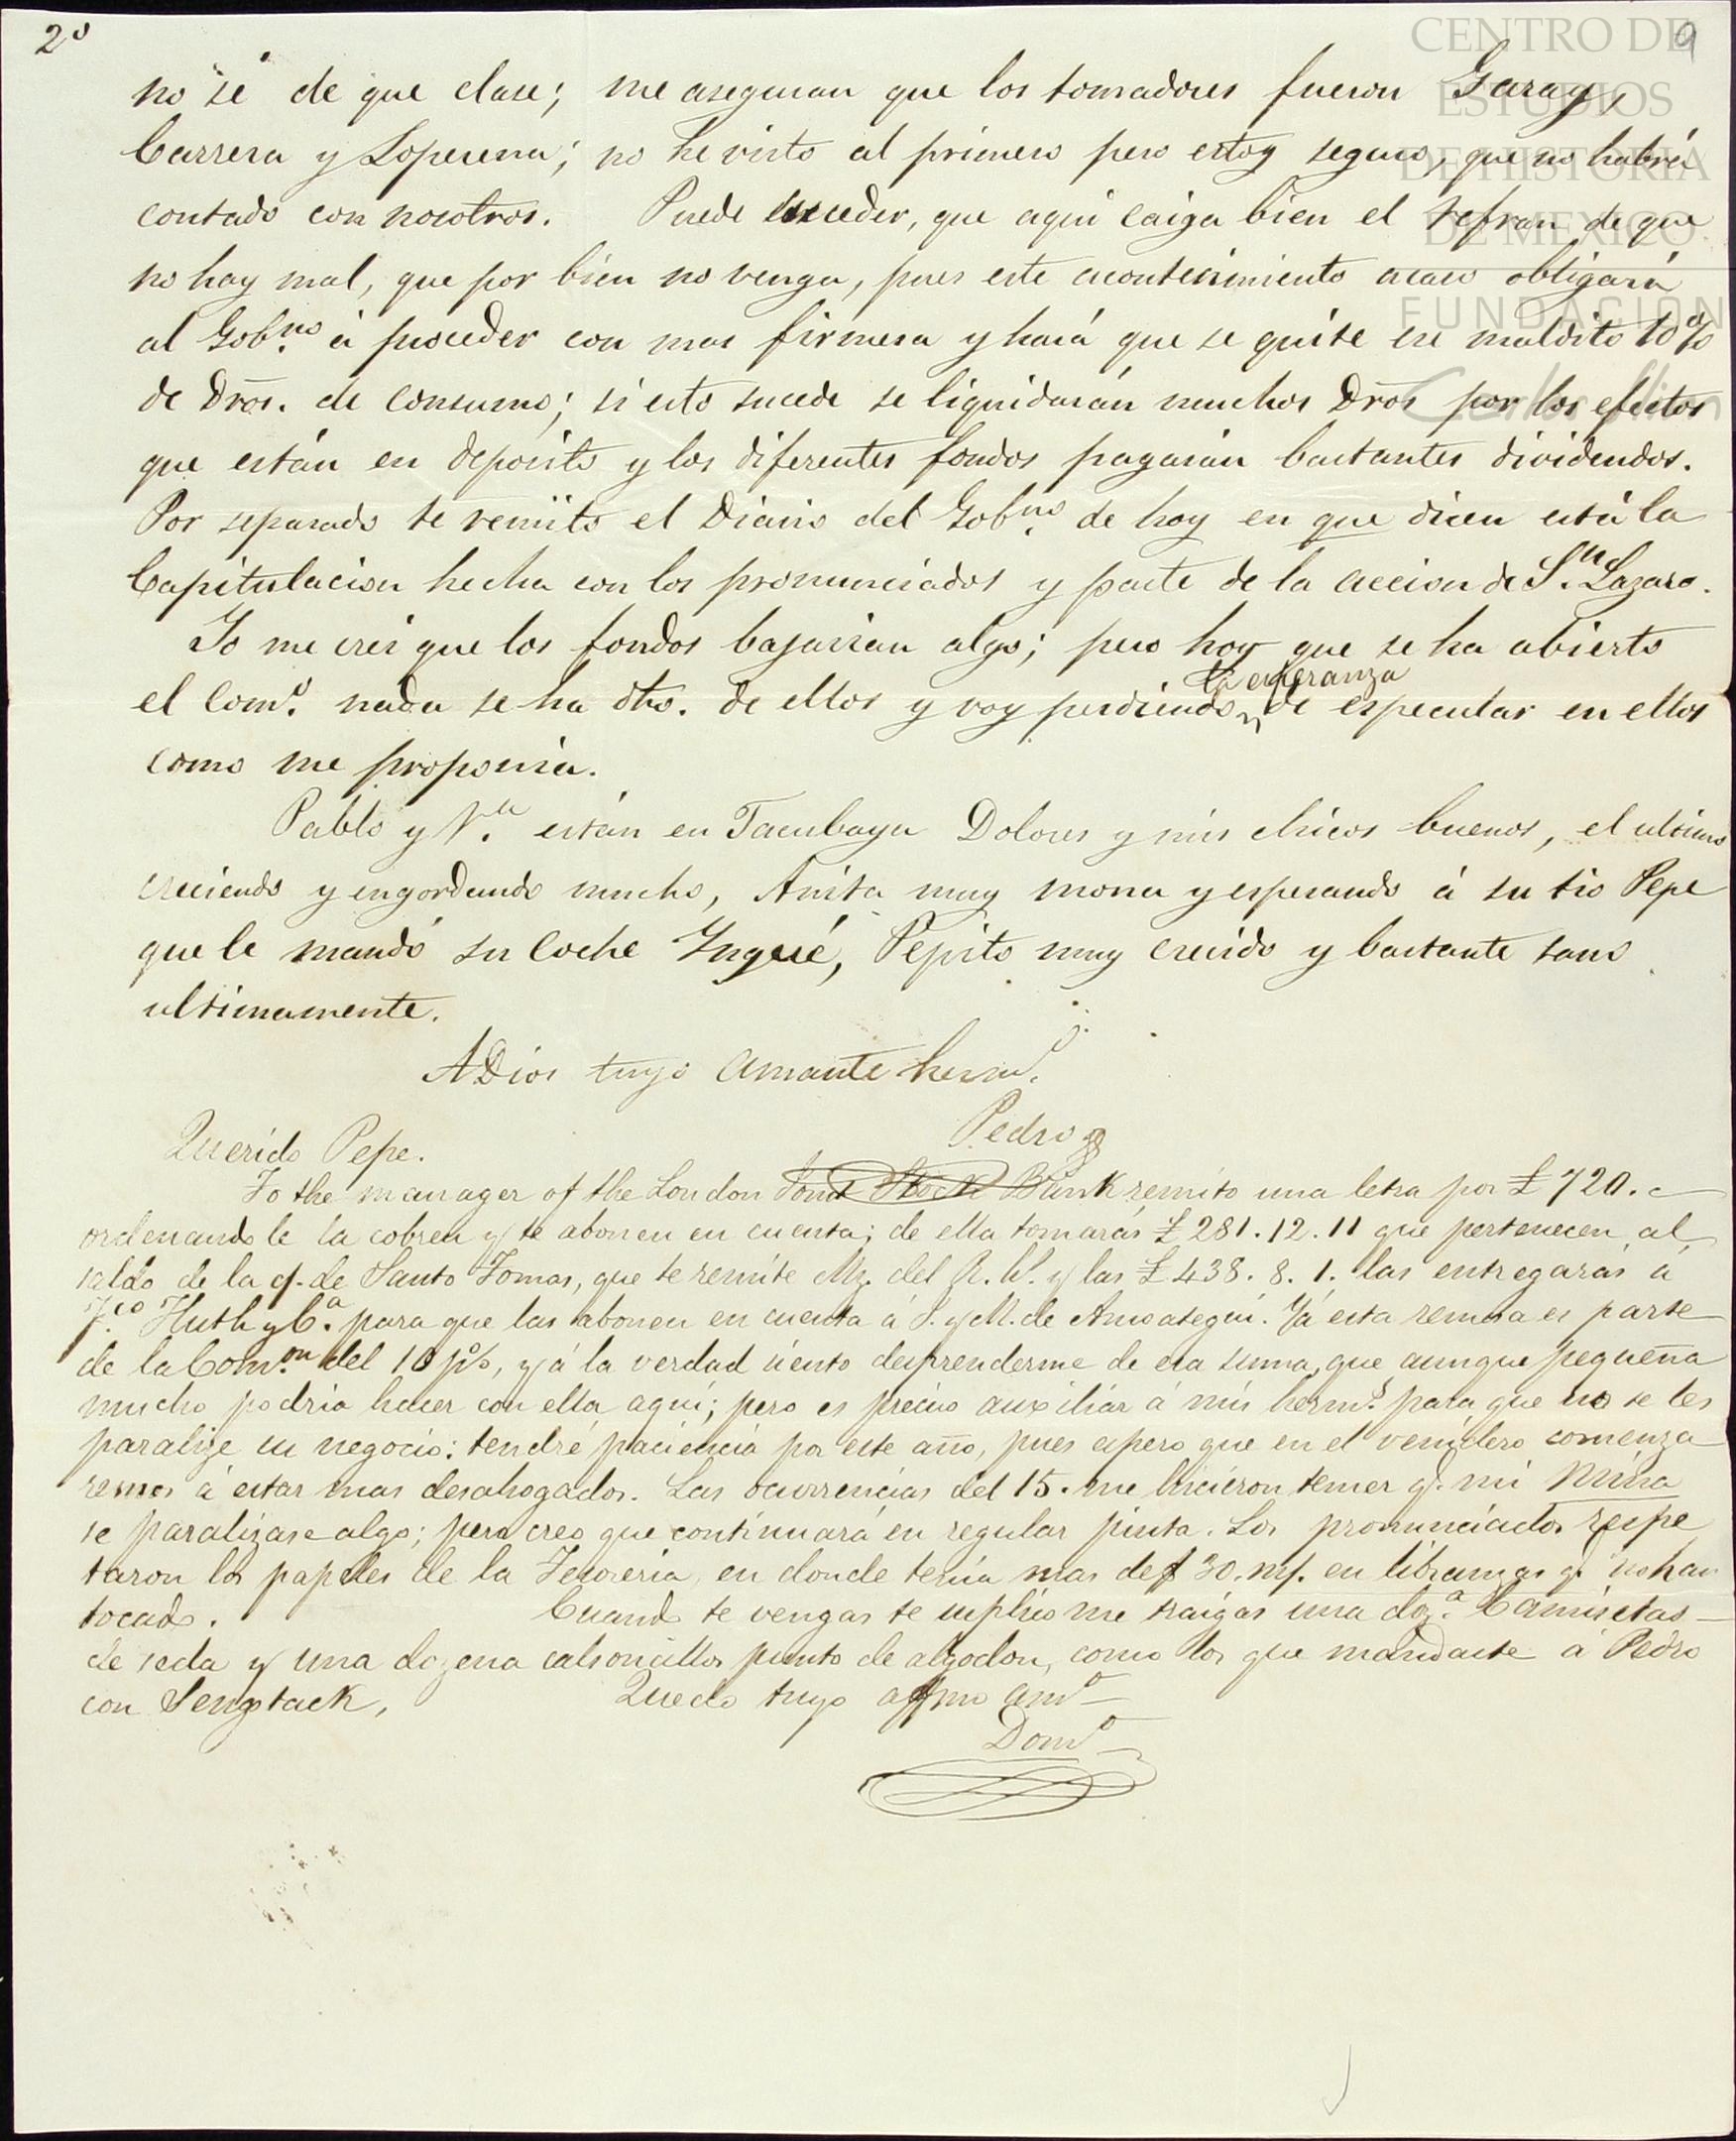 2º
9
CENTRO DE
ESTUDIOS
DE HISTORIA
DE MEXICO
FUNDACION
no sé de que clase; me aseguran que los tomadores fueron Garay,
Carrera y Loperena; no he visto al primero pero estoy seguro, que no habrá
contado con nosotros. Puede suceder, que aqui caiga bien el refran de que
no hay mal, que por bien no venga, pues este acontecimiento acaso obligará
al Gobno. á proceder con mas firmesa y hará que se quite ese maldito 10%
de Dros. de consumo; si esto sucede se liquidarán muchos Dros por los efectos
que están en deposito y los diferentes fondos pagarán bastantes dividendos.
Por separado te remito el Diario del Gobno. de hoy en que dicen está la
Capitulacion hecha con los pronunciados y parte de la accion de Sn. Lazaro.
Yo me crei que los fondos bajarian algo; pero hoy que se ha abierto
la esperanza
el Como. nada se ha dho. de ellos y voy perdiendo de especular en ellos
como me proponia.
Pablo y Va. están en Tacubaya Dolores y mis chicos buenos, el ultimo
creciendo y engordando mucho, Anita muy mona y esperando á su tio Pepe
que le mandó su coche Ynqué, Pepito muy crecido y bastante sano
ultimamente.
ADios tuyo amante hermo.
Pedro
Querido Pepe.
To the manager of the London Joint Stock Bank remito una letra por £ 720.
ordenandole la cobren y te abonen en cuenta; de ella tomarás £ 281.12.11 que pertenecen al
saldo de la q. de Santo Tomas, que te remite Mz. del R. W. y las £ 438. 8. 1. las entregarás á
Fco. Huth y Ca. para que las abonen en cuenta á S. y M. de Ansoategui. Yá esta remesa es parte
de la Comon. del 10 p%, y á la verdad siento desprenderme de esa suma, que aunque pequeña
mucho podria hacer con ella aqui; pero es preciso auxiliar á mis hermos. para que no se les
paralize su negocio: tendré paciencia por este año, pues espero que en el venidero comenza
remos á estar mas desahogados. Las ocurrencias del 15. me hicieron temer q. mi Mina
se paralizase algo; pero creo que continuará en regular pinta. Los pronunciados respe
taron los papeles de la Tesoreria, en donde tenia mas de $ 30. m$. en libranzas q. no han
tocado. Cuando te vengas te suplico me traigas una doza. Camisetas
de seda y una dozena calsoncillos punto de algodon, como los que mandaste á Pedro
con Sengstack, Quedo tuyo affmo amo
Domo